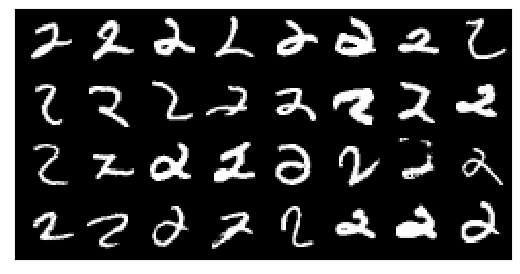 2 2 2 2 2 2 2 2
2 2 2 2 2 2 2 2
2 2 2 2 2 2 2
2 2 2 2 2 2 2 2